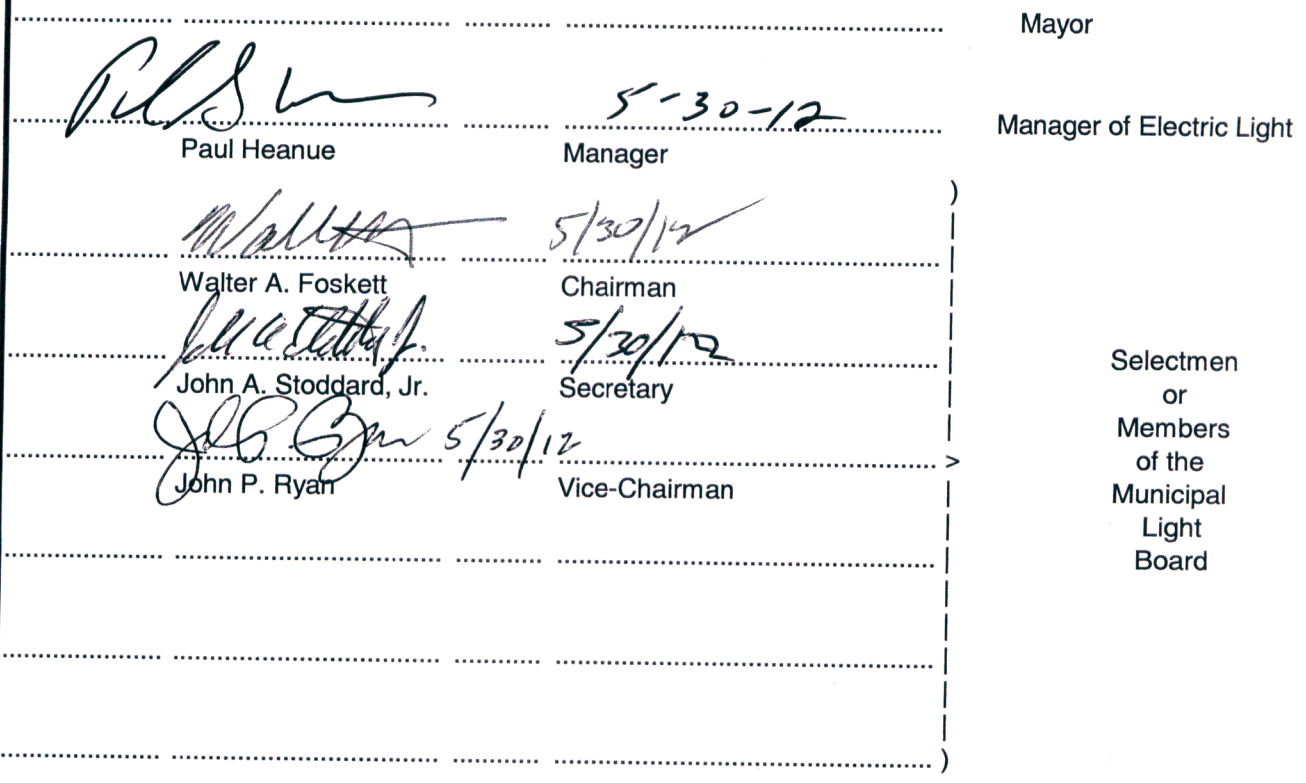 Mayor
5-30-12
Manager of Electric Light
Paul Heanue Manager
)
5/30/12
Walter A. Foskett Chairman
5/30/12
John A. Stoddard, Jr. Secretary
5/30/12
>
John P. Ryan Vice-Chairman
Selectmen
or
Members
of the
Municipal
Light
Board
)